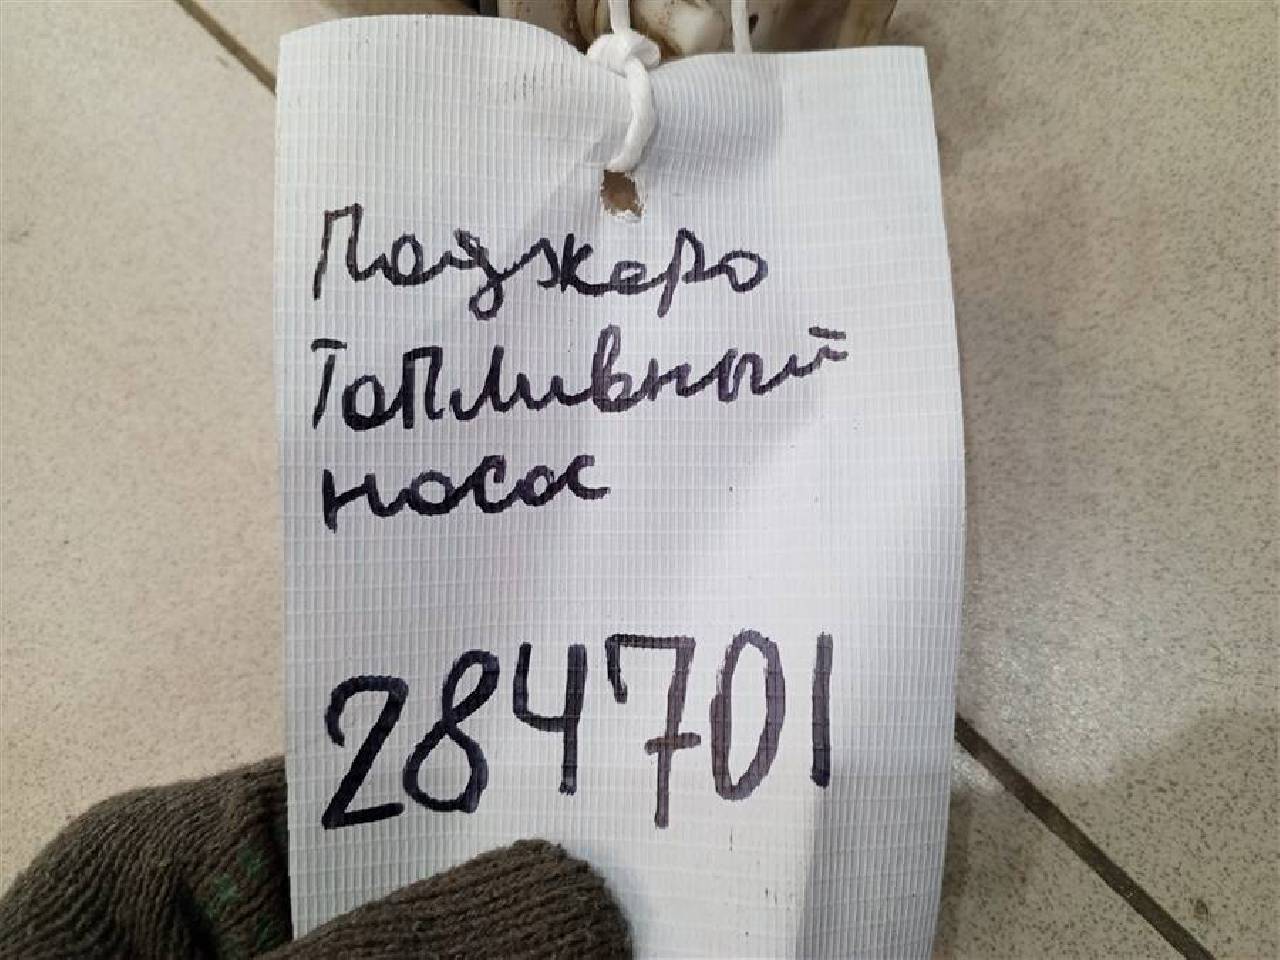 Паджеро
Топливный
насос
284701